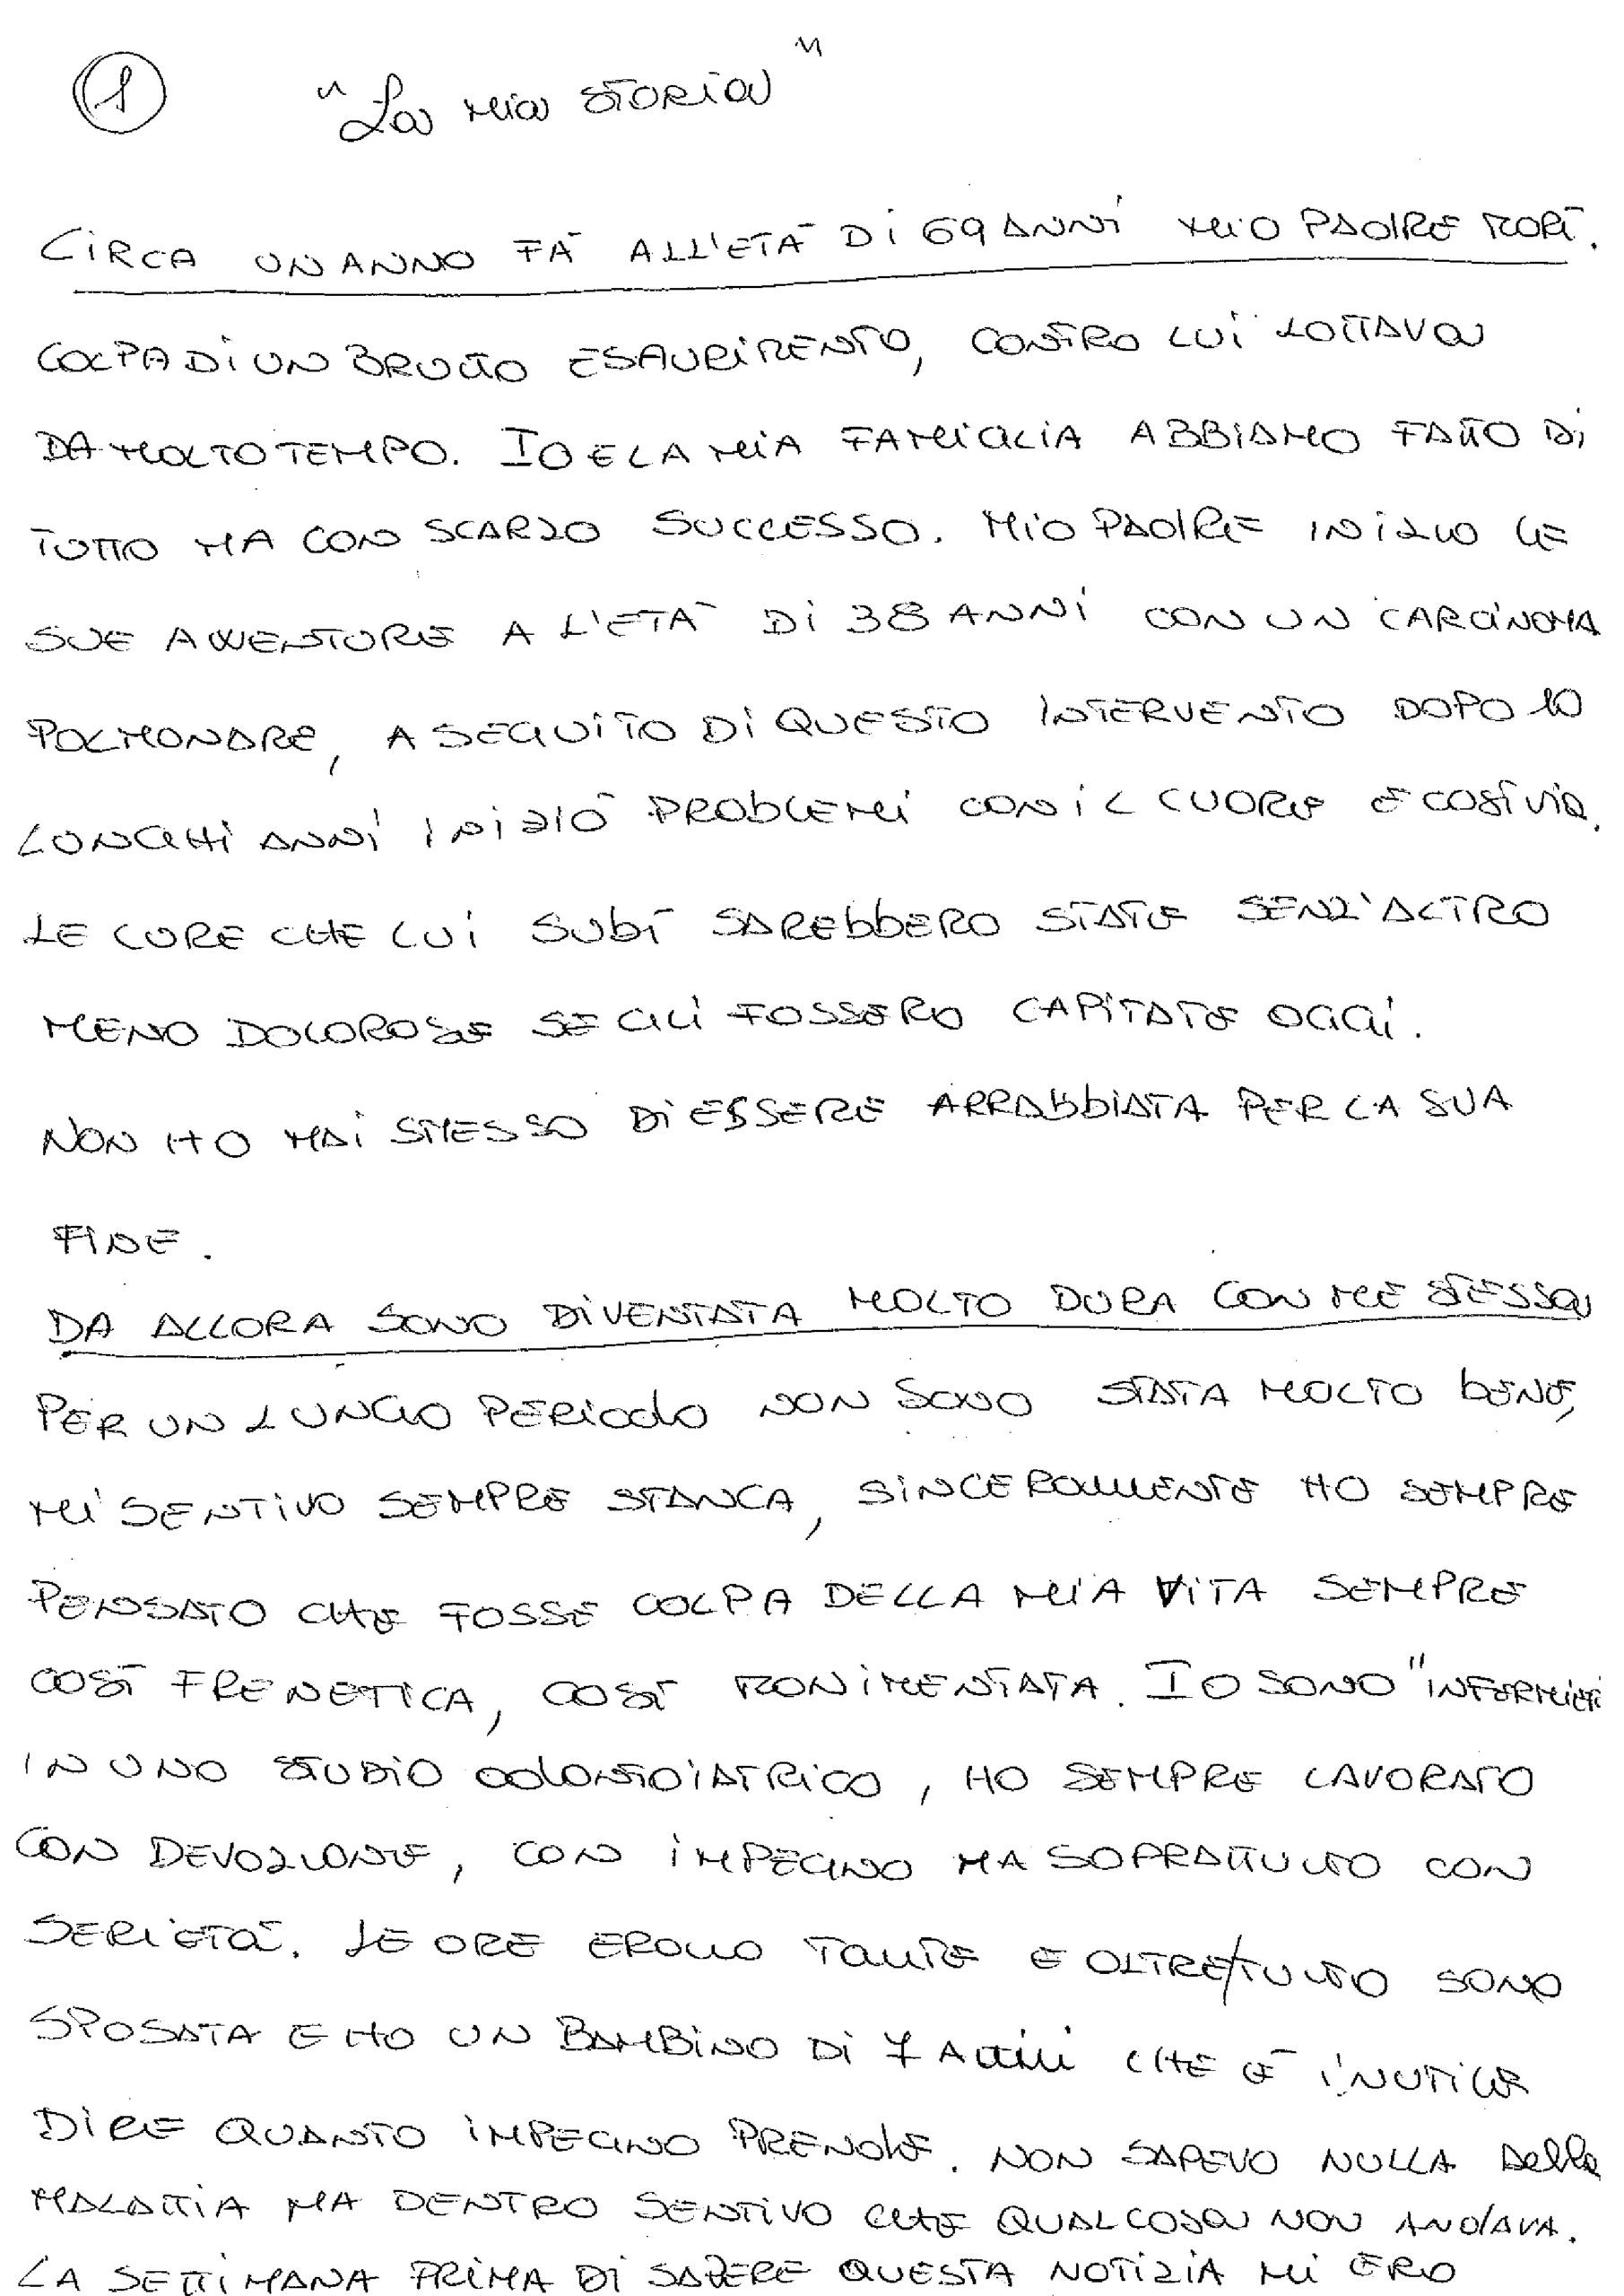 1 "La mia STORIA"
CIRCA UN ANNO FÀ ALL'ETÀ DI 69 ANNI MIO PADRE MORÌ.
COLPA DI UN BRUTTO ESAURIMENTO, CONTRO LUI LOTTAVA
DA MOLTO TEMPO. IO E LA MIA FAMIGLIA ABBIAMO FATTO DI
TUTTO MA CON SCARZO SUCCESSO. MIO PADRE INIZIO LE
SUE AVVENTURE A L'ETÀ DI 38 ANNI CON UN CARCINOMA
POLMONARE, A SEGUITO DI QUESTO INTERVENTO DOPO 10
LUNGHI ANNI INIZIÒ PROBLEMI CON IL CUORE E COSÌ VIA.
LE CURE CHE LUI SUBÌ SAREBBERO STATE SENZ'ALTRO
MENO DOLOROSE SE GLI FOSSERO CAPITATE OGGI.
NON HO MAI SMESSO DI ESSERE ARRABBIATA PER LA SUA
FINE.
DA ALLORA SONO DIVENTATA MOLTO DURA CON ME STESSA
PER UN LUNGO PERIODO NON SONO STATA MOLTO BENE,
MI SENTIVO SEMPRE STANCA, SINCERAMENTE HO SEMPRE
PENSATO CHE FOSSE COLPA DELLA MIA VITA SEMPRE
COSÌ FRENETICA, COSÌ MONIMENTATA. IO SONO "INFERMIERA
IN UNO STUDIO ODONTOIATRICO, HO SEMPRE LAVORATO
CON DEVOZIONE, CON IMPEGNO MA SOPRATTUTTO CON
SERIETÀ. LE ORE ERANO TANTE E OLTRE/TUTTO SONO
SPOSATA E HO UN BAMBINO DI 7 ANNI CHE È INUTILE
DIRE QUANTO IMPEGNO PRENDE. NON SAPEVO NULLA DELLA
MALATTIA MA DENTRO SENTIVO CHE QUALCOSA NON ANDAVA.
LA SETTIMANA PRIMA DI SAPERE QUESTA NOTIZIA MI ERO